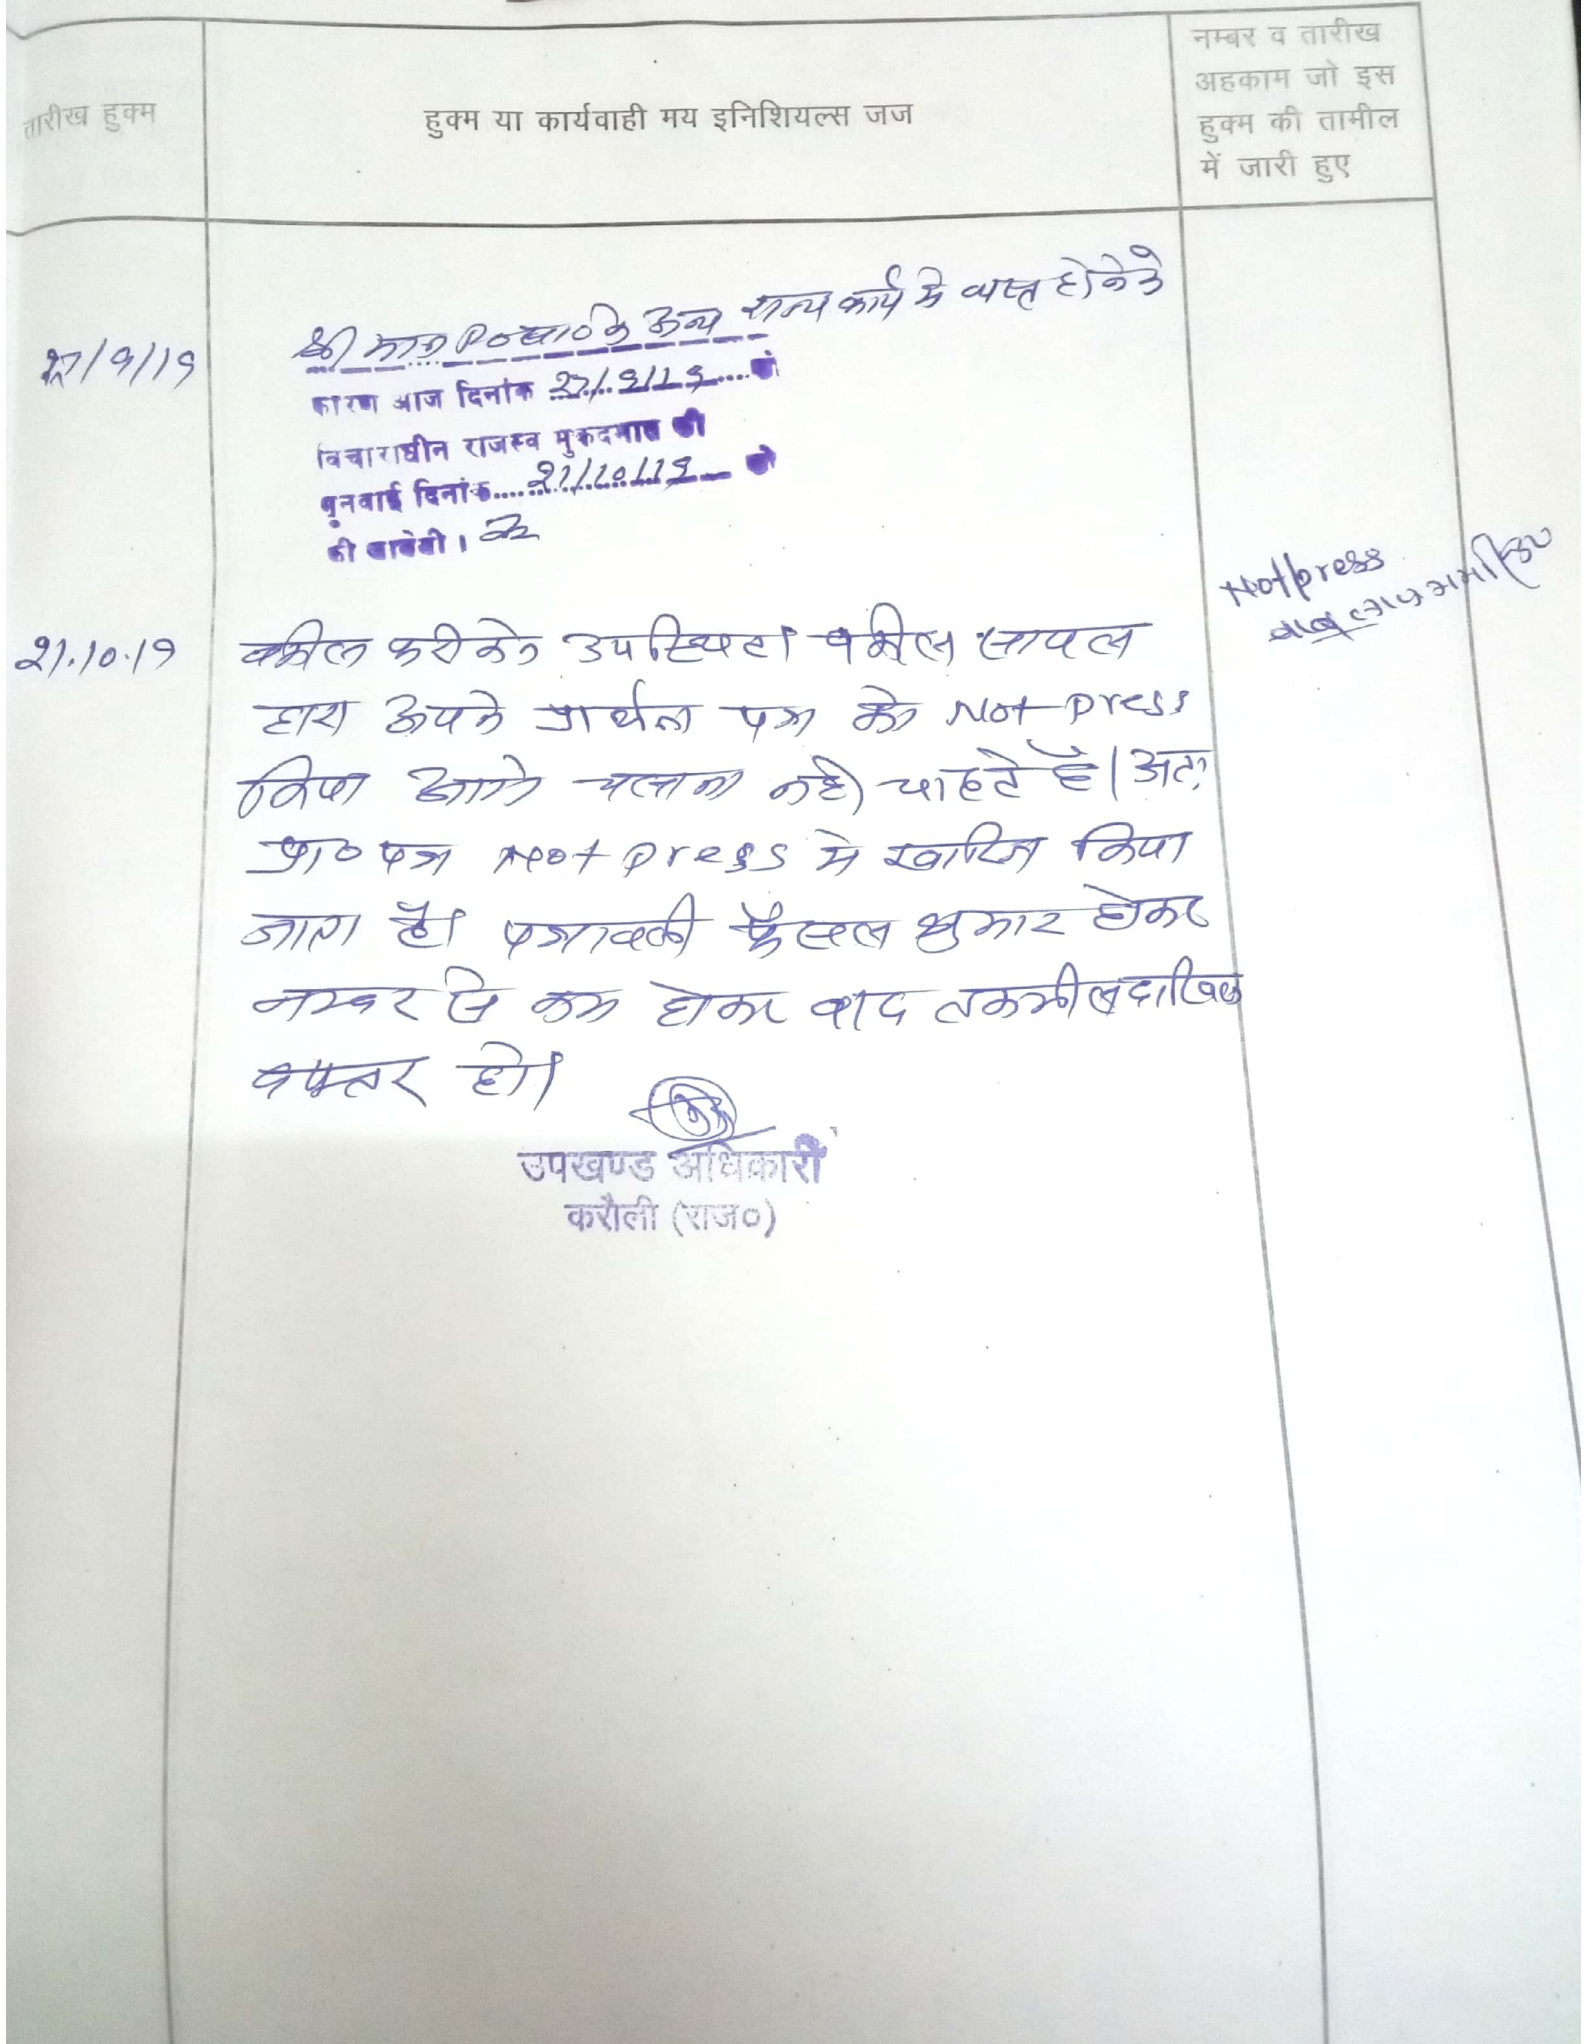 तारीख हुक्म
हुक्म या कार्यवाही मय इनिशियल्स जज
नम्बर व तारीख
अहकाम जो इस
हुक्म की तामील
में जारी हुए
27/9/19
श्री मान P०खा० के अन्य राज्य कार्य मे व्यस्त होने के
कारण आज दिनांक 27/9/19 को
विचाराधीन राजस्व मुकदमात की
सुनवाई दिनांक 21/10/19 को
की जावेगी।
Not press
21.10.19
वकील फरीकेन उपस्थित। वकील सायल
द्वारा अपने प्रार्थना पत्र को Not press
किया आगे चलाना नही चाहते है। अतः
प्रा० पत्र Not press मे खारिज किया
जाता है। पत्रावली फैसल शुमार होकर
नम्बर से कम होकर बाद तकमील दाखिल
दफ्तर हो।
उपखण्ड अधिकारी
करौली (राज०)